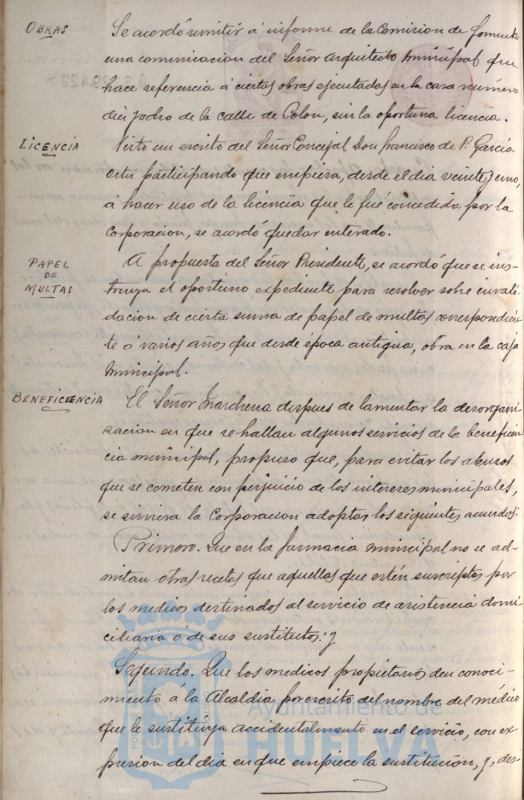 OBRAS
Se acordó remitir á informe de la Comision de fomento
una comunicacion del Señor Arquitecto Municipal que
hace referencia á ciertas obras ejecutadas en la casa número
diez y ocho de la calle de Colon, sin la oportuna licencia.
LICENCIA
Visto un escrito del Señor Concejal Don Francisco de P. Garcia
participando que empieza, desde el dia veinte y uno,
á hacer uso de la licencia que le fué concedida por la
Corporacion, se acordó quedar enterado.
PAPEL
DE
MULTAS
A propuesta del Señor Presidente, se acordó que se ins-
truya el oportuno expediente para resolver sobre
de cierta suma de papel de multas correspondien-
te á varios años que desde época antigua, obra en la caja
Municipal.
BENEFICENCIA
El Señor Marchena despues de lamentar la desorgani-
zacion en que se hallan algunos servicios de la beneficen-
cia municipal, propuso que, para evitar los abusos
que se cometen con perjuicio de los intereses municipales,
se sirviera la Corporacion adoptar los siguientes acuerdos:
Primero. Que en la farmacia municipal no se ad-
mitan otras recetas que aquellas que estén suscriptas por
los medicos destinados al servicio de asistencia domi-
ciliaria ó de sus sustitutos; y
Segundo. Que los medicos propietarios den conoci-
miento á la Alcaldía por escrito del nombre del médico
que le sustituya accidentalmente en el servicio, con ex-
presion del dia en que empiece la sustitucion, y, des-
Ayuntamiento de
HUELVA